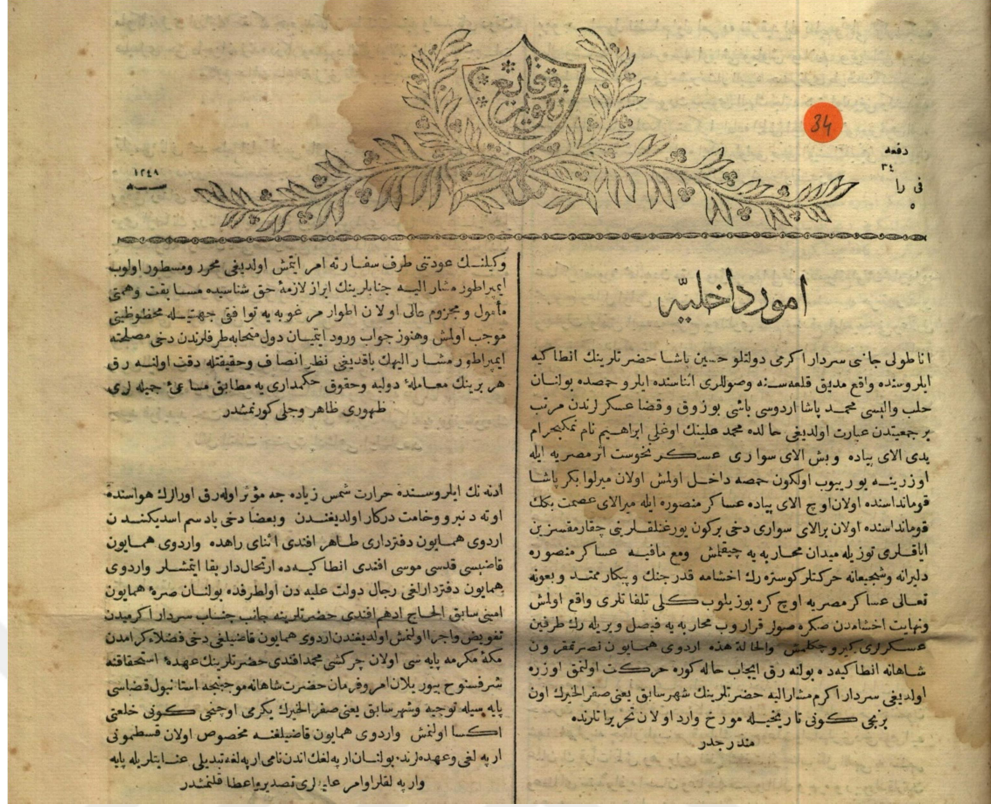 تقويم وقايع
34
دفعه
٣٤
فى را
٥
١٢٤٨
سنه
امور داخليّه
اناطولى جانبى سردار اكرمى دولتلو حسين پاشا حضرتلرينك انطاكيه
ايلروسنده واقع مديق قلعه‌سنه وصوللرى اثناسنده ايلرو حمصده بولنان
حلب واليسى محمد پاشا اردوسى باشى بوزوق وقضا عسكرلرندن مرتب
بر جمعيتدن عبارت اولديغى حالده محمد علينك اوغلى ابراهيم نام نمكبحرام
يدى الاى پياده وبش الاى سوارى عسكر نحوست اثر مصريه ايله
اوزرينه يوريوب اولكون حمصه داخل اولمش اولان ميرلوا بكر پاشا
قومانداسنده اولان اوچ الاى پياده عساكر منصوره ايله ميرالاى عصمت بكك
قومانداسنده اولان بر الاى سوارى دخى بركون يورغنلقلرينى چقارمقسزين
اياقلرى توزيله ميدان محاربه‌يه چيقلمش ومع مافيه عساكر منصوره
دليرانه وشجيعانه حركتلر كوستره‌رك اخشامه قدر جنك وپيكار ممتد وبعونه
تعالى عساكر مصريه اوچ كره بوزيلوب كلى تلفاتلرى واقع اولمش
ونهايت اخشامدن صكره صولر قراروب محاربه‌يه فيصل ويريله‌رك طرفين
عسكرلرى كيرو چكلمش والحالة هذه اردوى همايون نصرتمقرون
شاهانه انطاكيه‌ده بولنه‌رق ايجاب حاله كوره حركت اولنمق اوزره
اولديغى سردار اكرم مشاراليه حضرتلرينك شهر سابق يعنى صفر الخيرك اون
برنجى كونى تاريخيله مورخ وارد اولان تحريراتارنده
مندرجدر
وكيلنك عودتنى طرف سفارته امر ايتمش اولديغى محرر ومسطور اولوب
ايمپراطور مشاراليه جنابلرينك ابراز لازمهٔ حق شناسيده مسابقت وهمتى
مأمول ومجزوم عالى اولان اطوار مرغوبه‌يه توافقى جهتيله محظوظيتى
موجب اولمش وهنوز جواب ورود ايتميان دول متحابه طرفلرندن دخى مصلحته
ايمپراطور مشاراليهك باقديغى نظر انصاف وحقيقتله دقت اولنه‌رق
هر برينك معاملهٔ دوليه وحقوق حكمدارى‌يه مطابق مساعئ جميله‌لرى
ظهورى ظاهر وجلى كورنمشدر
ادنه‌نك ايلروسنده حرارت شمس زياده‌جه مؤثر اوله‌رق اورالرك هواسنده
اوته‌دنبرو وخامت دركار اولديغندن وبعضا دخى باد سم اسديكندن
اردوى همايون دفتردارى طاهر افندى اثناى راهده واردوى همايون
قاضيسى قدسى موسى افندى انطاكيه‌ده ارتحال دار بقا ايتمشلر واردوى
همايون دفتردارلغى رجال دولت عليه‌دن اولطرفده بولنان صرهٔ همايون
امينى سابق الحاج ادهم افندى حضرتلرينه جانب جناب سردار اكرميدن
تفويض واجرا اولنمش اولديغندن اردوى همايون قاضيلغى دخى فضلاء كرامدن
مكهٔ مكرمه پايه‌سى اولان چركشى محمد افندى حضرتلرينك عهدهٔ استحقاقنه
شرفسنوح بيوريلان امر وفرمان حضرت شاهانه موجبنجه استانبول قضاسى
پايه‌سيله توجيه وشهر سابق يعنى صفر الخيرك يكرمى اوچنجى كونى خلعتى
اكسا اولنمش واردوى همايون قاضيلغنه مخصوص اولان قسطمونى
ارپه‌لغى وعهده‌لرنده بولنان ارپه‌لغك اندن نامى ارپه‌لغه تبديلى عنايتلريله پايه
وارپه‌لقلر اوامر عليه‌لرى تصدير واعطا قلنمشدر